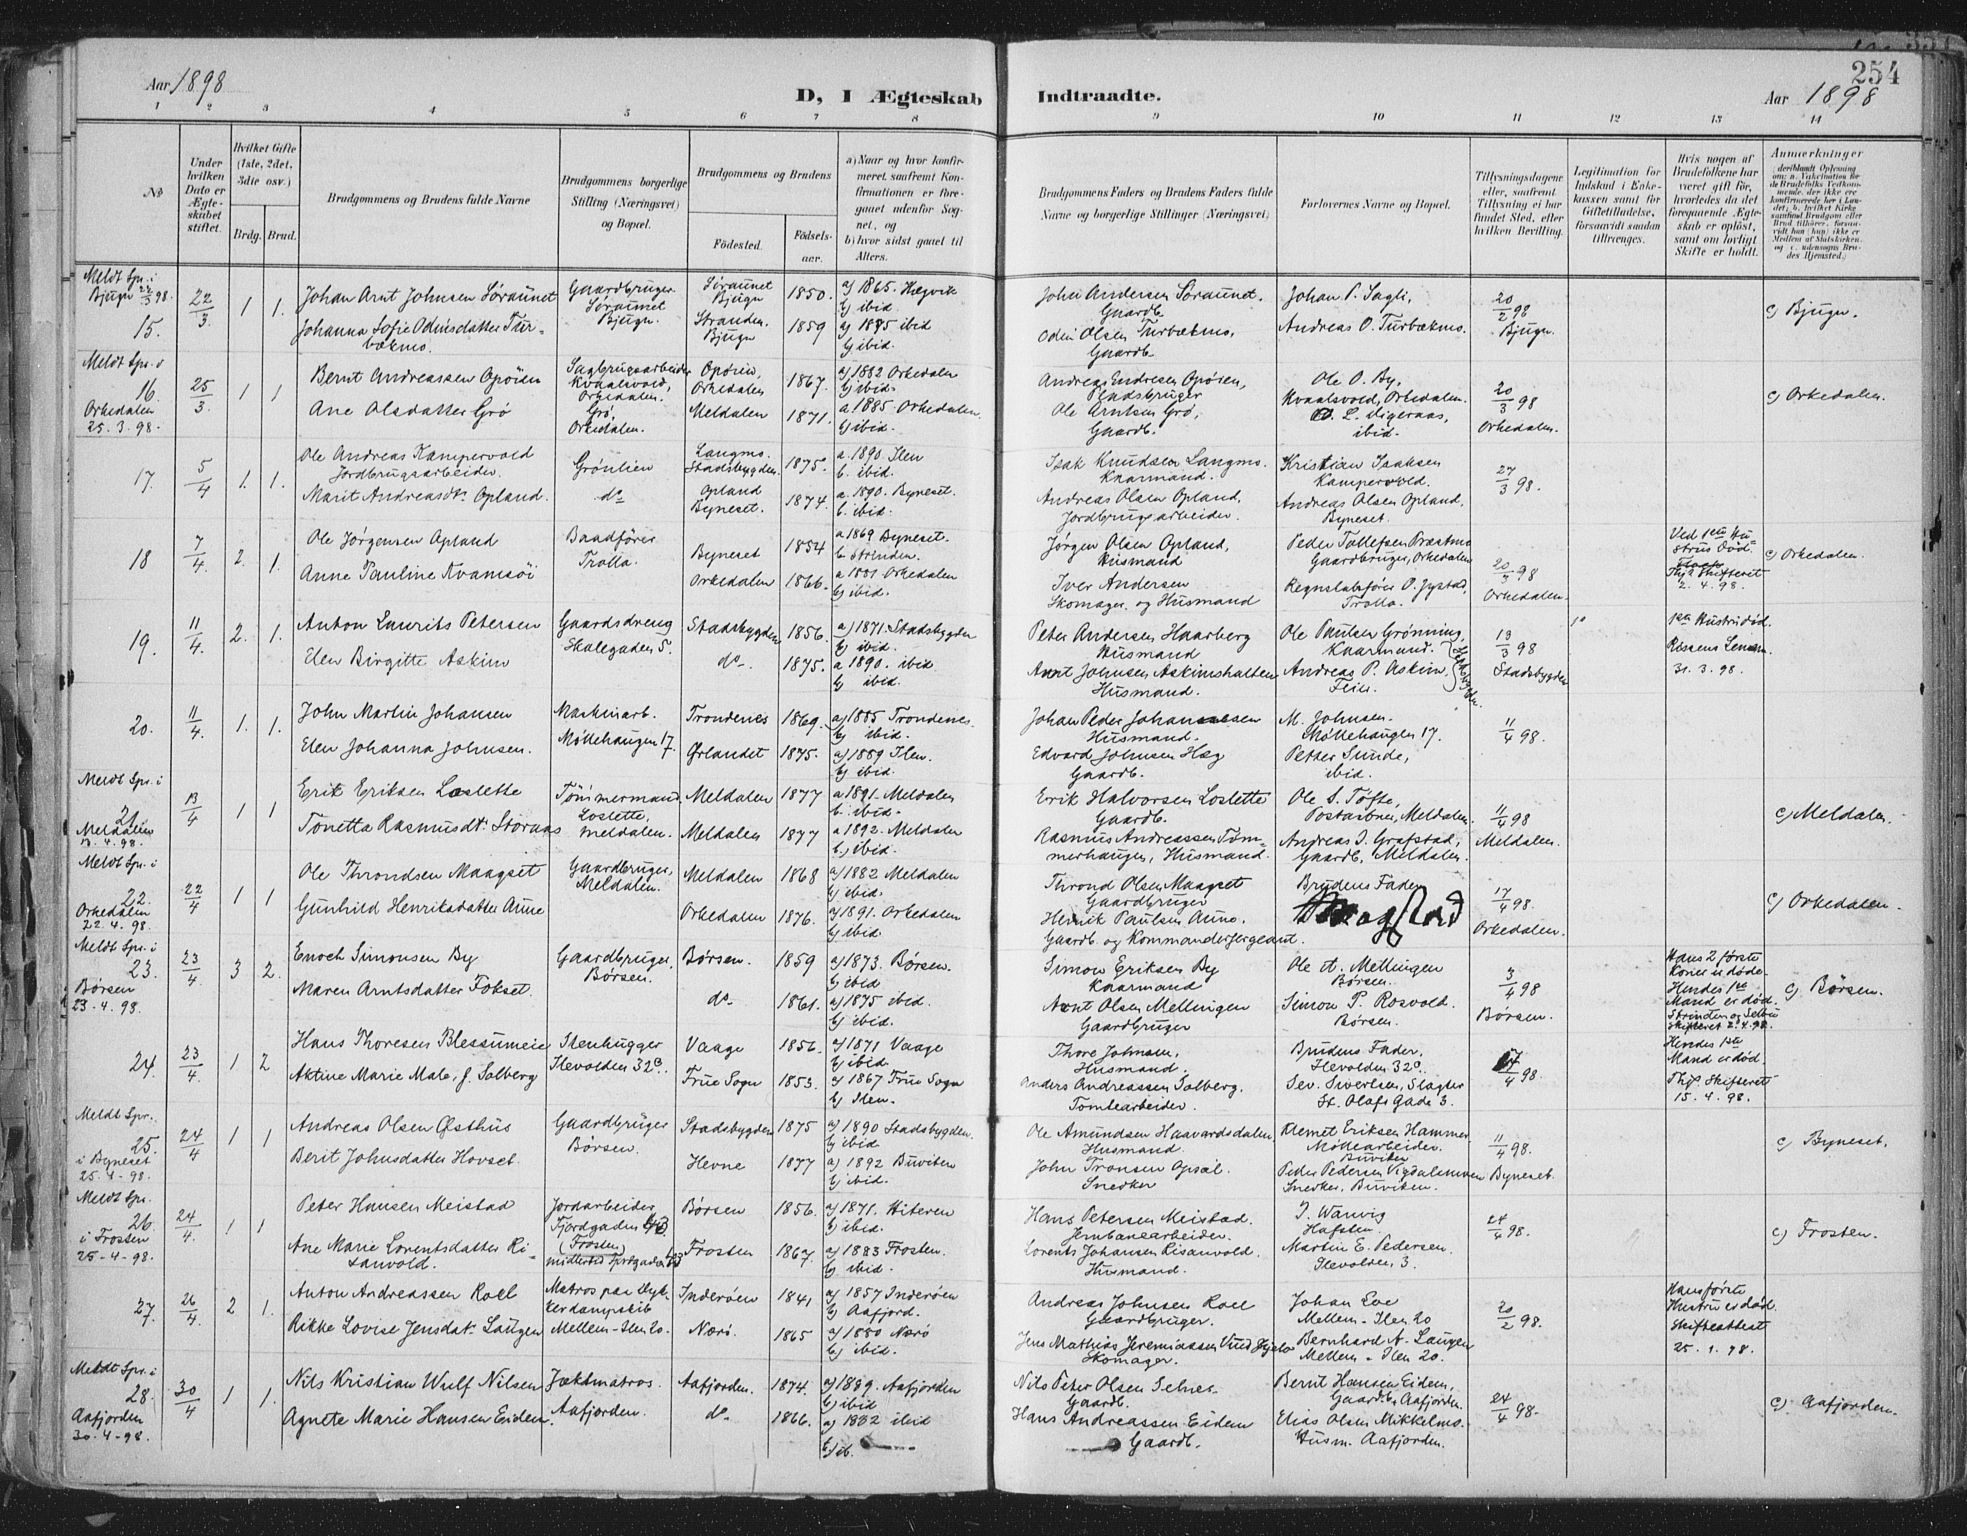 254
Aar 1898
D, I Ægteskab Indtraadte.
Aar 1898
1 2 3 4 5 6 7 8 9 10 11 12 13 14
No
Under hvilken Dato er Ægteskabet stiftet.
Hvilket Gifte (1ste, 2det, 3die osv.)
Brdg. Brud.
Brudgommens og Brudens fulde Navne
Brudgommens borgerlige Stilling (Næringsvei) og Bopæl.
Brudgommens og Brudens
Fødested.
Fødselsaar.
a) Naar og hvor konfirmeret, saafremt Konfirmationen er foregaaet udenfor Sognet, og
b) hvor sidst gaaet til Alters.
Brudgommens Faders og Brudens Faders fulde Navne og borgerlige Stillinger (Næringsvei)
Forlovernes Navne og Bopæl.
Tillysningsdagene eller, saafremt Tillysning ei har fundet Sted, efter hvilken Bevilling.
Legitimation for Indskud i Enkekassen samt for Giftetilladelse, forsaavidt saadan tiltrænges.
Hvis nogen af Brudefolkene har været gift før, hvorledes da det foregaaende Ægteskab er opløst, samt om lovligt Skifte er holdt.
Anmerkninger
Meldt Spr. i Bjugn 22/3 98.
15. 22/3 1 1.
Johan Arnt Johnsen Søraunet Gaardbruger Søraunet Bjugn. Søraunet Bjugn 1850. a) 1865. Hægvik b) ibid
Johanna Sofie Odinsdatter Turbækmo. Stranden. Bjugn 1859 a) 1875 ibid b) ibid.
John Andersen Søraunet. Gaardb. Johan P. Sagli, 20/2 98 Bjugn. c) Bjugn.
Odin Olsen Turbækmo, Gaardb. Andreas O. Turbækmo.
Meldt Spr. i Orkedalen 25.3.98.
16. 25/3 1 1
Bernt Andreassen Opöien Sagbrugsarbeider Kvaalsvold, Orkedalen. Opöien, Orkedalen 1867. a) 1882 Orkedalen b) ibid.
Ane Olsdatter Grö Grö, Orkedalen. Meldalen 1871. a. 1885. Orkedalen. b) ibid.
Andreas Endresen Opöien, Pladsbruger Ole O. By, Kvaalsvold, Orkedalen. 20/3 98 Orkedalen. c) Orkedalen.
Ole Arntsen Grö, Gaardb. L. Digeraas, ibid.
17. 5/4 1. 1.
Ole Andreas Kampervold Jordbrugsarbeider. Grönlien Langmo. Stadsbygden 1875. a. 1890. Ilen b. ibid.
Marit Andreasdtr Opland. do Opland Byneset. 1874. a. 1890. Byneset. b. ibid.
Isak Knudsen Langmo. Kaarmand. Kristian Isaksen Kampervold. 27/3 98.
Andreas Olsen Opland, Jordbrugsarbeider. Andreas Olsen Opland, Byneset.
18 7/4 2. 1.
Ole Jørgensen Opland Baadfører Trolla. Byneset 1854 a 1869 Byneset. b Strinden.
Anne Pauline Kvamsöi Orkedalen 1866. a 1881 Orkedalen b) ibid.
Jørgen Olsen Opland, Husmand Peder Tollefsen Præstmo Gaardbruger, Orkedalen 20/3 98 Orkedalen.
Iver Andersen Skomager og Husmand Regnskabsfører O. Jystad, Trolla.
Ved 1ste Hustrus Död. Thj. Skifteret 2.4.98. c) Orkedalen.
19. 11/4 2. 1.
Anton Laurits Petersen Gaardsdreng Skolegaden 5. Stadsbygden 1856. a) 1871. Stadsbygden b) ibid.
Elen Birgitte Askim do 1875. a 1890. ibid b) ibid.
Peter Andersen Haarberg Husmand Ole Paulsen Grønning, Kaarmand. 13/3 98 Stadsbygden
Arnt Johnsen Askimshalten Husmand. Andreas P. Askim, Feier. Stadsbygden.
1ste Hustru död. Rissens Lensm. 31.3.98.
20. 11/4 1. 1.
John Martin Johansen Maskinarb. Møllehaugen 17. Trondenes 1869. a) 1885 Trondenes. b) ibid.
Elen Johanna Johnsen. Ørlandet 1875. a) 1889 Ilen. b) ibid.
Johan Peder Johannesen Husmand. M. Johnsen. Møllehaugen 17. 11/4 98.
Edvard Johnsen Hæg Gaardb. Petter Sunde, ibid.
Meldt Spr. i Meldalen 13.4.98.
21. 13/4 1 1
Erik Eriksen Loslette Tömmermand Loslette, Meldalen. Meldalen 1877 a 1891. Meldalen b. ibid.
Tonetta Rasmusdtr Storaas Meldalen 1877 a 1892. Meldalen b) ibid.
Erik Halvorsen Loslette Gaardb. Ole S. Tofte, Postaabner, Meldalen 11/4 98 Meldalen. c) Meldalen.
Rasmus Andreassen Tømmerhaugen, Husmand. Andreas I. Grafstad, Gaardb. Meldalen.
Meldt Spr. i Orkedalen 22.4.98.
22. 22/4 1 1
Ole Throndsen Maagset Gaardbruger, Meldalen. Meldalen 1868 a) 1882 Meldalen b) ibid.
Gunhild Henriksdatter Aune Orkedalen 1876. a) 1891. Orkedalen b) ibid.
Thrond Olsen Maagset Gaardbruger Brudens Fader 17/4 98. Orkedalen. c) Orkedalen.
Henrik Paulsen Aune. Gaardb. og Kommandersergeant.
Meldt Spr. i Börsen 23-4.98.
23. 23/4 3 2.
Enoch Simonsen By Gaardbruger, Børsen. Børsen. 1859 a) 1873. Børsen. b) ibid
Maren Arntsdatter Fokset. do 1861. a) 1875 ibid. b) ibid.
Simon Eriksen By Kaarmand Ole A. Mellingen Børsen. 3/4 98 Børsen.
Arnt Olsen Mellingen Gaardbruger Simon P. Rosvold. Børsen.
Hans 2 første Koner er døde. Hendes 1ste Mand er død. Strinden og Selbu Skifteret 2.4.98. c) Børsen.
24. 23/4 1 2
Hans Thoresen Blessumeie Stenhugger Ilevolden 32c. Vaage 1856. a) 1871 Vaage b) ibid.
Aktine Marie Malo, f. Solberg Frue Sogn 1853. a) 1867 Frue Sogn b) Ilen.
Thore Johnsen. Husmand. Brudens Fader, Ilevolden 32c. 17/4 98.
Anders Andreassen Solberg. Tomtearbeider. Sev. Sivertsen, Slagter St. Olafs Gade 3.
Hendes 1ste Mand er død. Thj. Skifteret 15.4.98.
Meldt Spr. i Byneset 25-4-98.
25. 24/4 1 1
Andreas Olsen Østhus Gaardbruger Børsen. Stadsbygden 1875 a) 1890 Stadsbygden. b) ibid
Berit Johnsdatter Hovset. Hevne 1877 a) 1892 Buviken b) ibid.
Ole Amundsen Haavardsdalen Husmand. Klemet Eriksen Hammer Møllearbeider. Buviken 11/4 98. Byneset. c) Byneset.
John Tronsen Opsal. Snedker Peder Pedersen Vigdalsmoen Snedker, Buviken.
Meldt Spr. i Frosten 25-4-98.
26. 24/4 1 1
Peter Hansen Meistad Jordarbeider, Fjordgaden 43 (Frosten) Børsen 1856. a) 1871. Hiteren b) ibid.
Ane Marie Lorentsdatter Risanvold. midlertid Fjordgaden 43 Frosten 1867. a) 1883 Frosten. b) ibid.
Hans Petersen Meistad. Jernbanearbeider. J. Wanvig Hafsten. 24/4 98. c) Frosten.
Lorents Johansen Risanvold. Husmand. Martin E. Pedersen. Ilevolden, 3.
27. 26/4 2 1.
Anton Andreassen Roel Matros paa Dykkerdampskib Mellem-Ilen 20. Inderøen 1841 a) 1857 Inderøen b) Aafjord.
Rikke Lovise Jensdatr Laugen Nærö. 1865 a) 1880 Nærö b) ibid.
Andreas Johnsen Roel Gaardbruger. Johan Loe Mellem-Ilen 20 20/2 98.
Jens Mathias Jeremiassen Skomager. Bernhard A. Laugen Mellem-Ilen 20.
Hans første Hustru er død. Skifteattest 25.1.98.
Meldt Spr. i Aafjorden 30-4-98.
28. 30/4 1 1.
Nils Kristian Wulf Nilsen Jæktmatros. Aafjorden. Aafjorden. 1874. a) 1889. Aafjorden b) ibid
Agnete Marie Hansen Eidem do 1866. a) 1882 ibid b) ib.
Nils Peter Olsen Selnes Gaardb. Bernt Hansen Eidem, Gaardb. Aafjorden. 24/4 98. c) Aafjorden.
Hans Andreassen Eidem Gaardb. Elias Olsen Mikkelmo. Husm. Aafjorden.